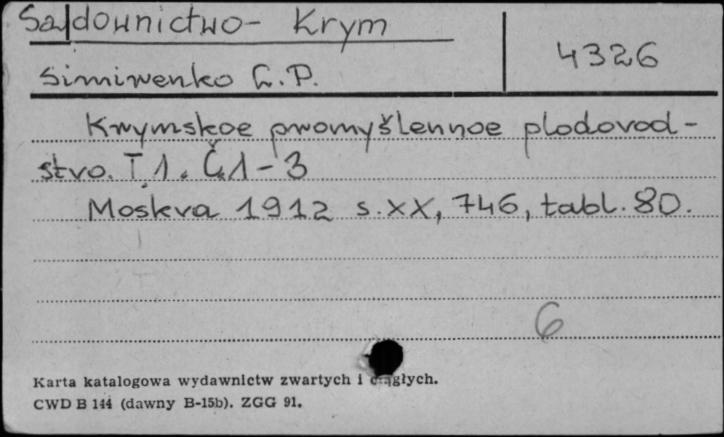 Sadownictwo - Krym
4326
Simirenko L.P.
Krymskoe promyšlennoe plodovod-
stvo. T.1. Č.1-3
Moskva 1912 s.XX, 746, tabl. 80.
6
Karta katalogowa wydawnictw zwartych i ciągłych.
CWD B 144 (dawny B-15b). ZGG 91.